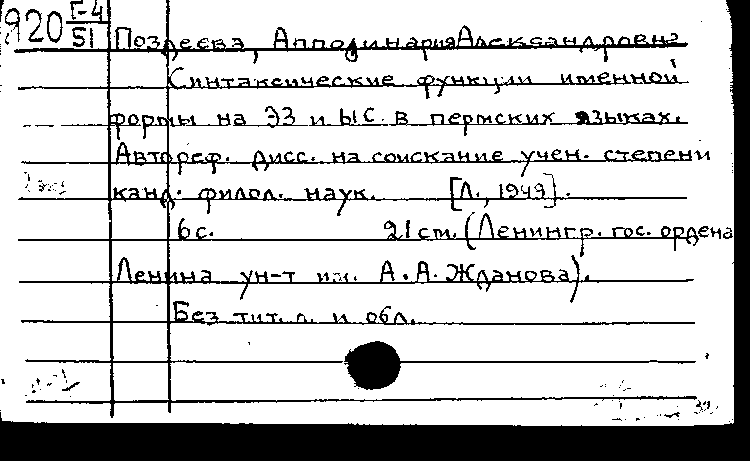 Я20 Г-4
51
Поздеева, Апполинария Александровна
Синтаксические функции именной
формы на ЭЗ и ЫС в пермских языках.
Автореф. дисс. на соискание учен. степени
2 экз
канд. филол. наук. [Л., 1949].
6 с. 21 см. (Ленингр. гос. ордена
Ленина ун-т им. А.А. Жданова).
Без тит. л. и обл.